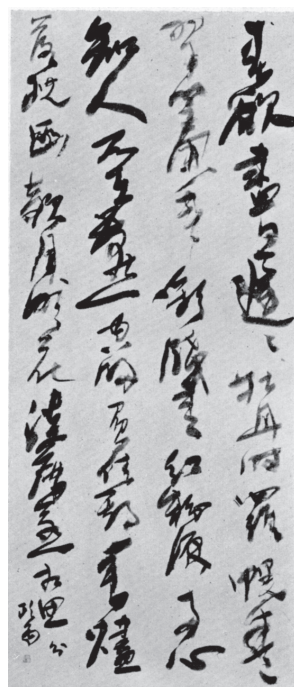 春欲盡日遲遲牡丹時羅幌卷
翠簾垂彩牋書紅粉淚兩心
知人不在燕空歸負佳期香燼
落枕函欹月分明花淡薄惹相思